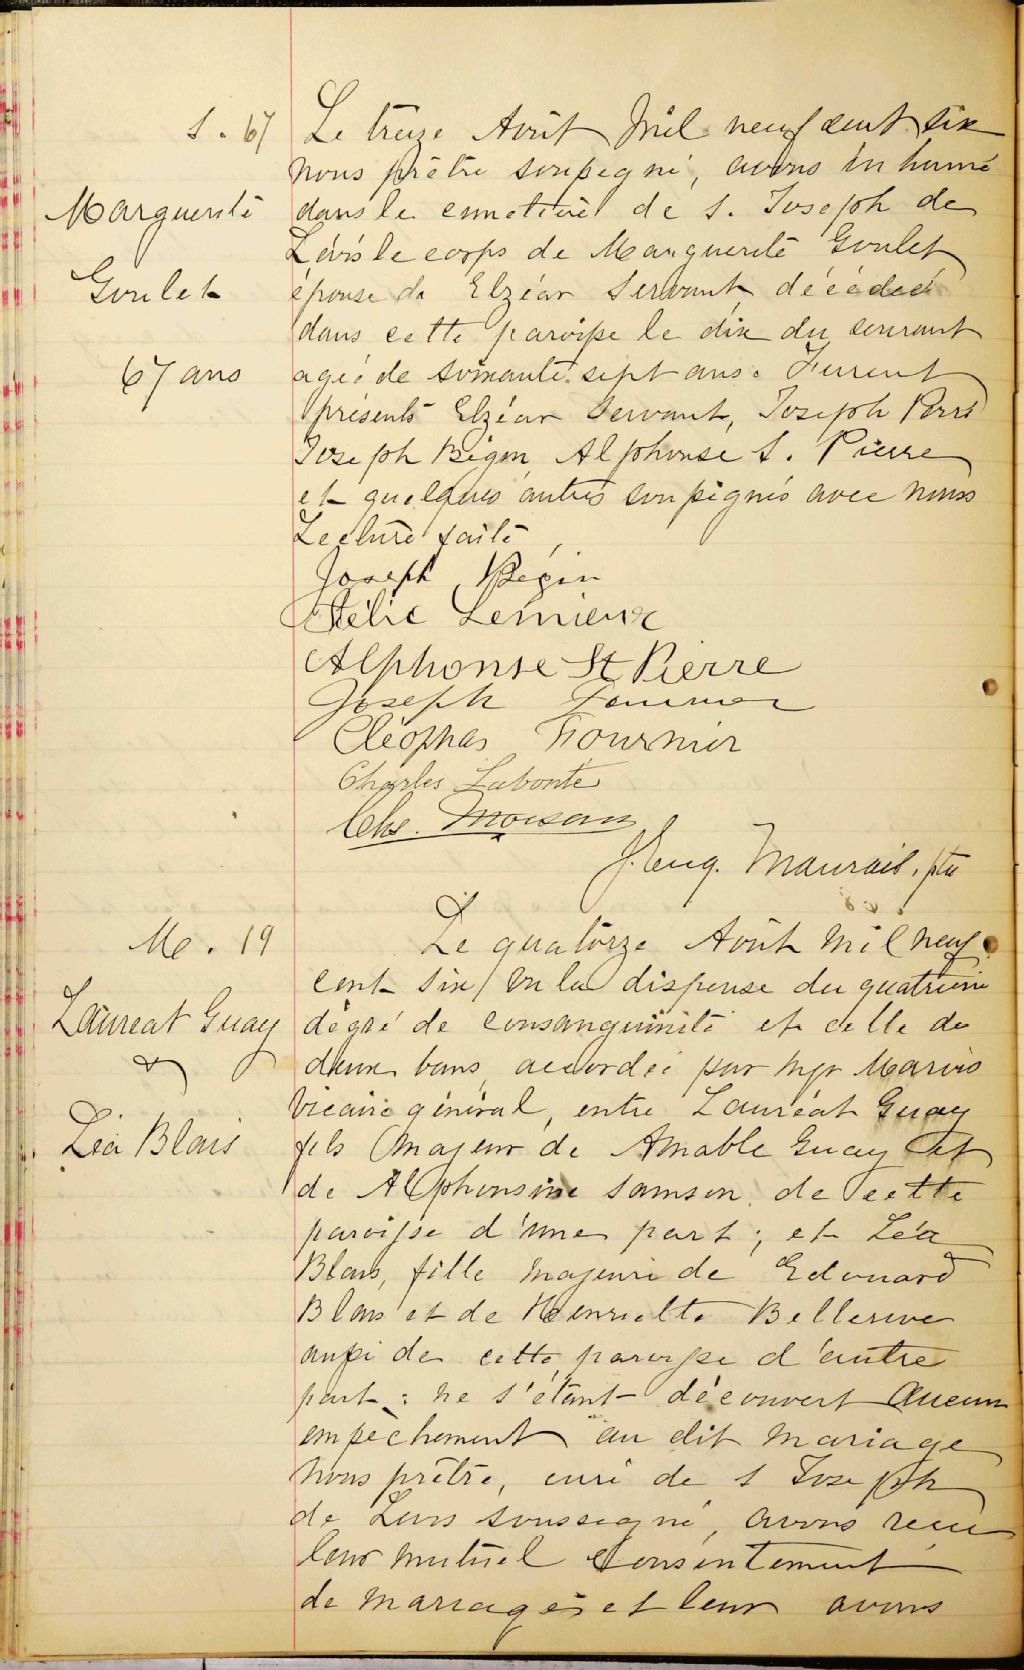 S. 67
Marguerite
Goulet
67 ans
Le treize Août mil neuf cent six
nous prêtre soussigné, avons inhumé
dans le cimetière de S. Joseph de
Lévis le corps de Marguerite Goulet
épouse de Elzéar Servant, décédée
dans cette paroisse le dix du courant
agée de soixante sept ans. Furent
présents Elzéar Servant, Joseph
Joseph Bégin, Alphonse S. Pierre
et quelques autres soussignés avec nous
Lecture faite,
Joseph Begin
Félix Lemieux
Alphonse St Pierre
Joseph
Cléophas Fournier
Charles Labonté
Chs. Moisan
J. Eug. Maurais, ptre
M. 19
Lauréat Guay
&
Léa Blais
Le quatorze Août mil neuf
cent six, vu la dispense du quatrième
dégré de consanguinité et celle de
deux bans, accordée par Mgr Marois
Vicaire général, entre Lauréat Guay
fils majeur de Amable Guay et
de Alphonsine Samson, de cette
paroisse d'une part; et Léa
Blais, fille majeure de Edouard
Blais et de Henriette Bellerive
aussi de cette paroisse d'autre
part: ne s'étant découvert aucun
empèchement au dit mariage
Nous prêtre, curé de S Joseph
de Levis soussigné, avons reçu
leur mutuel consentement
de mariage et leur avons